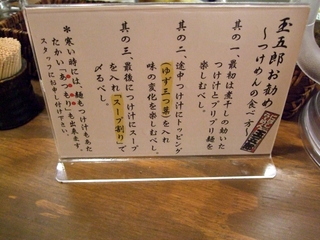 玊五郎お勧め
～つけめんの食べ方～
其の一、最初は煮干しの効いた
つけ汁とプリプリ麺を
楽しむべし。
其の二、途中つけ汁にトッピング
(ゆず三つ葉)を入れ
味の変化を楽しむべし。
其の三、最後につけ汁にスープ
を入れ「スープ割り」で
〆るべし。
＊寒い時には、麺もつけ汁もあた
たかい「あつもり」も出来ます。
スタッフにお申し付け下さい。